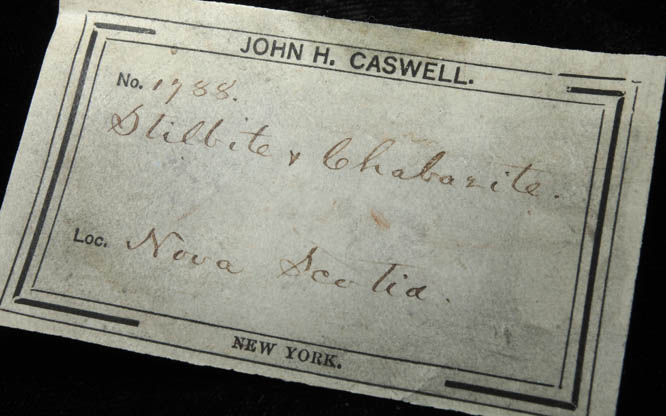 JOHN H. CASWELL.
No. 1788.
Stilbite & Chabazite.
Loc. Nova Scotia.
NEW YORK.